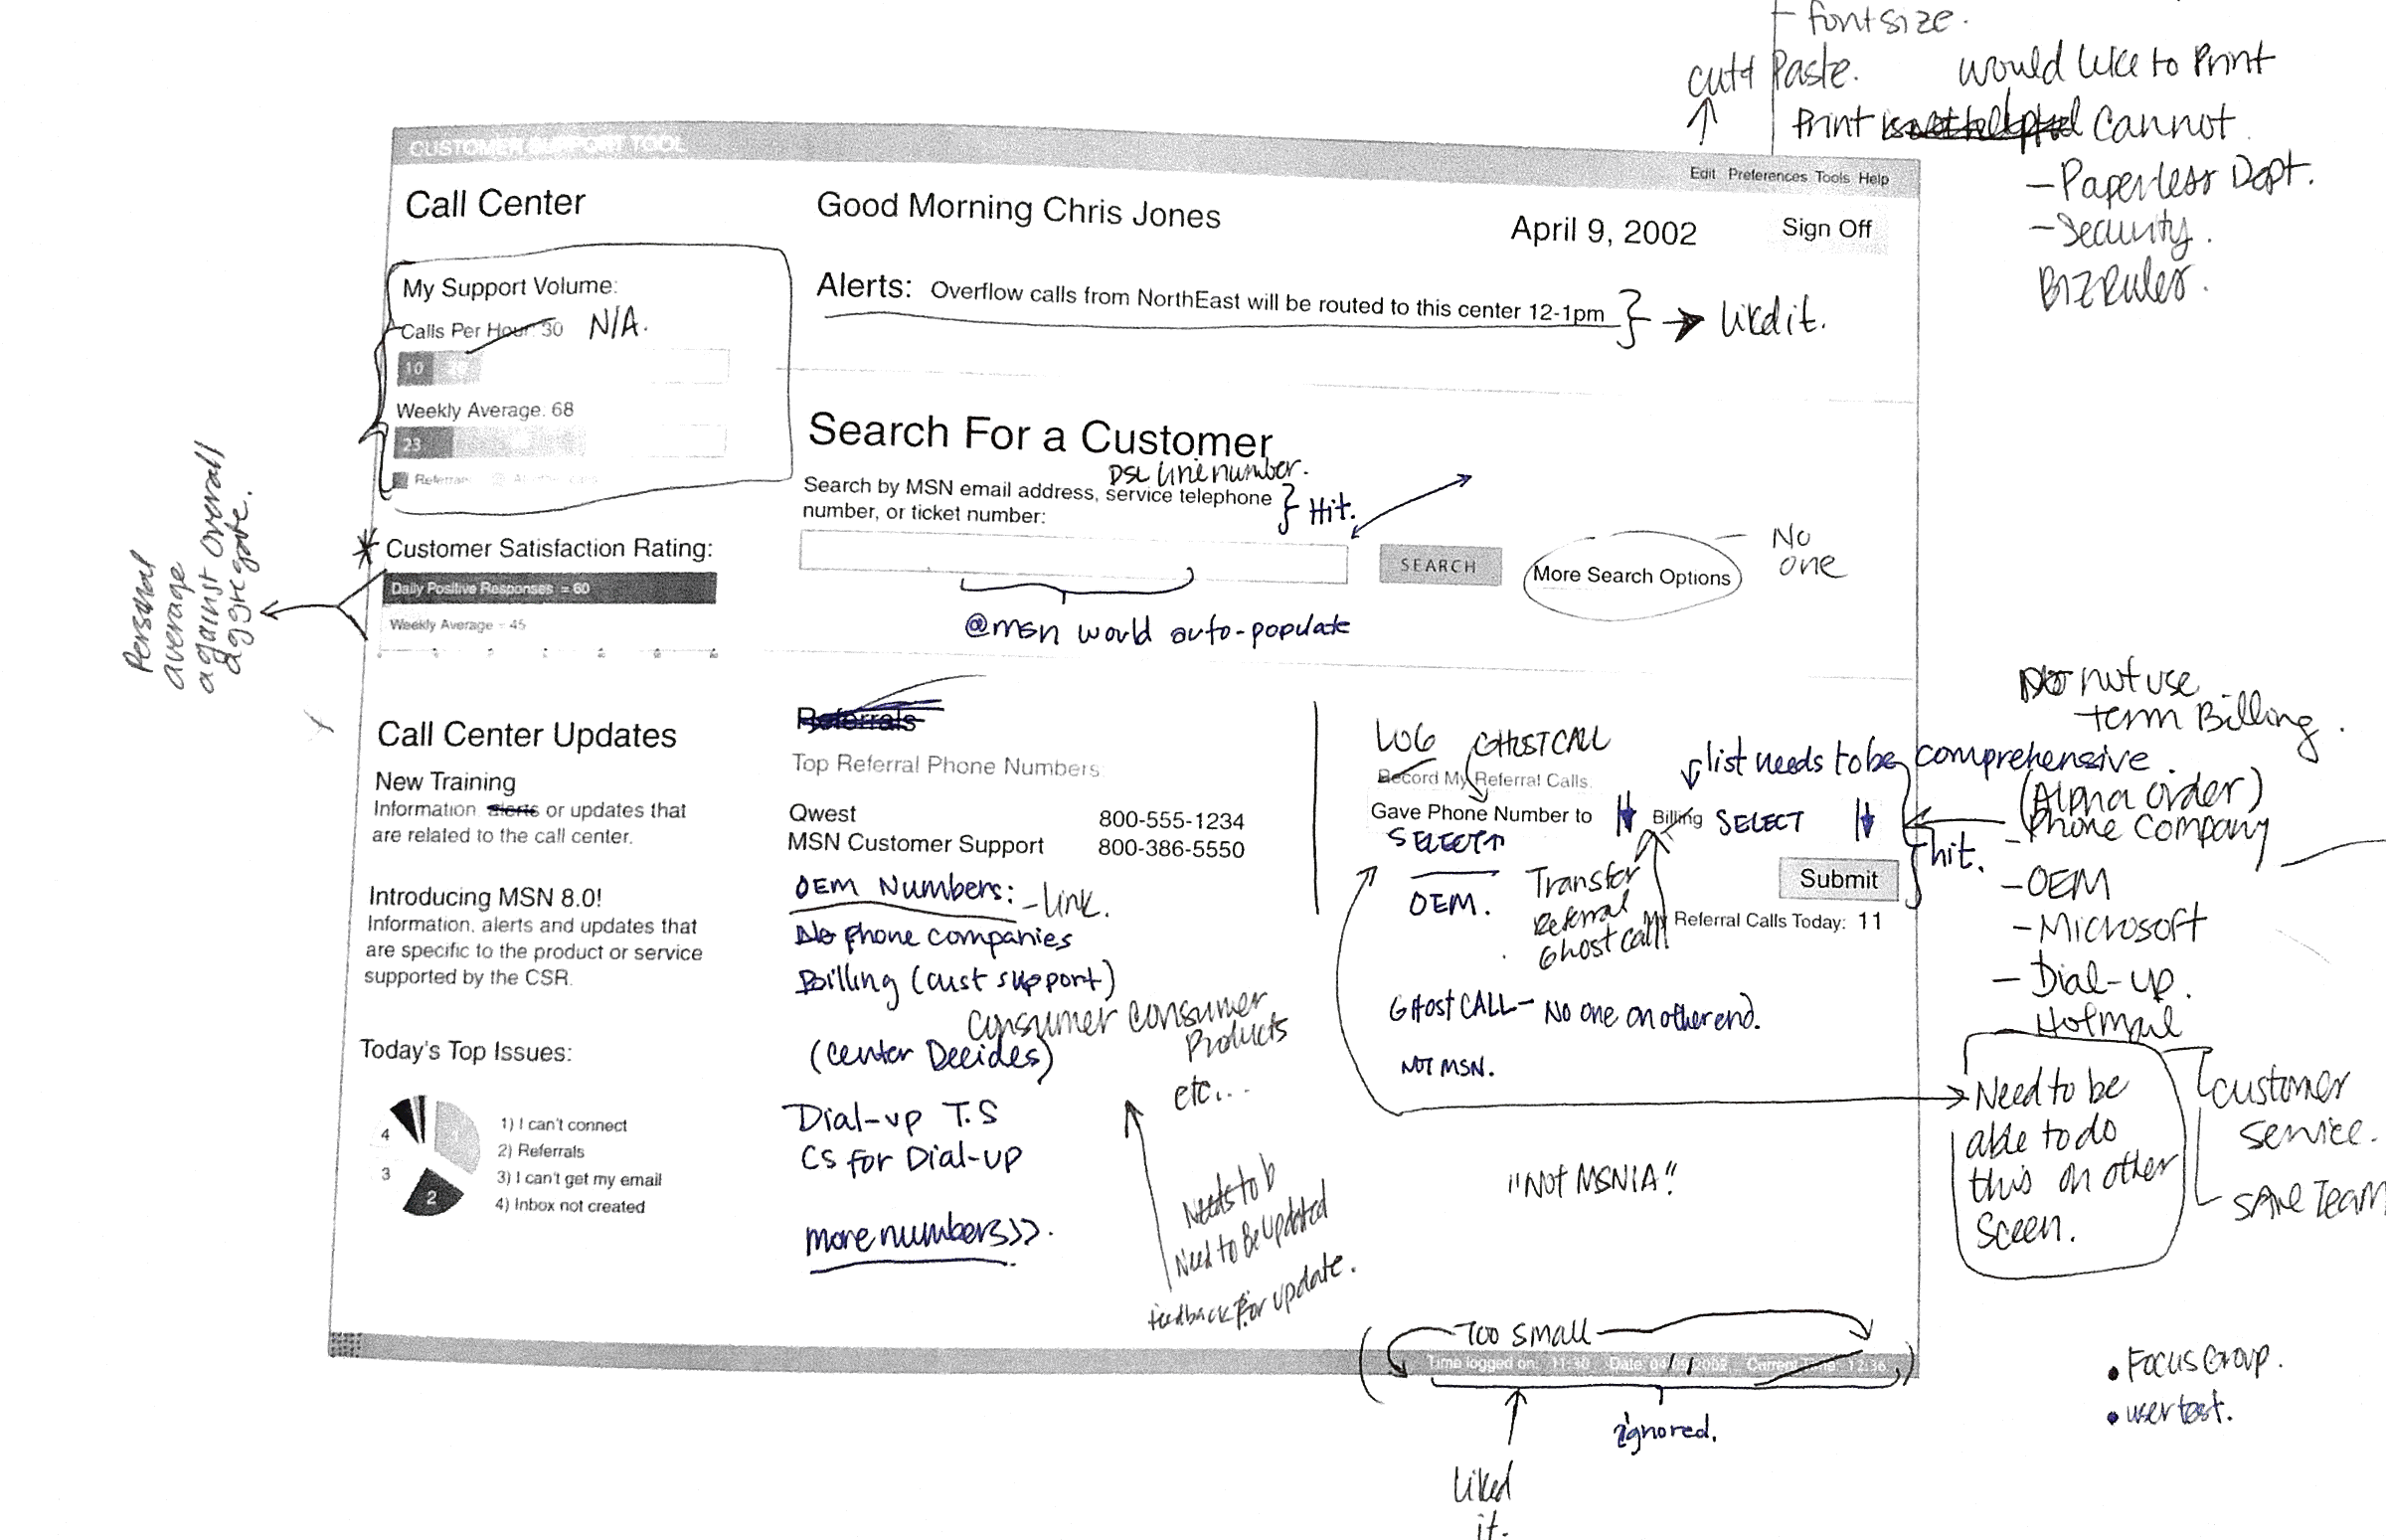 - fontsize.
cut + Paste.
would like to Print
Print is not helpful cannot
- Paperless Dept.
- Security.
BIZ Rules.
CUSTOMER SUPPORT TOOL
Edit Preferences Tools Help
Call Center
Good Morning Chris Jones
April 9, 2002
Sign Off
My Support Volume:
Calls Per Hour: 30 N/A.
10
Weekly Average. 68
23
Referrals
Alerts: Overflow calls from NorthEast will be routed to this center 12-1pm
likd it.
Search For a Customer
DSL line number.
Search by MSN email address, service telephone
number, or ticket number:
Hit.
SEARCH
More Search Options
No
one
@msn would auto-populate
Customer Satisfaction Rating:
Daily Positive Responses = 60
Weekly Average = 45
Personal
average
against overall
aggregate.
Call Center Updates
New Training
Information alerts or updates that
are related to the call center.
Introducing MSN 8.0!
Information, alerts and updates that
are specific to the product or service
supported by the CSR.
Today's Top Issues:
1
2
3
4
1) I can't connect
2) Referrals
3) I can't get my email
4) Inbox not created
Referrals
Top Referral Phone Numbers
Qwest 800-555-1234
MSN Customer Support 800-386-5550
OEM Numbers: - Link.
No phone companies
Billing (cust support)
consumer consumer
Products
etc...
(Center Decides)
Dial-up T.S
CS for Dial-up
more numbers>>.
Needs to b
Need to Be Updated
feedback for update.
LOG
GHOST CALL
Record My Referral Calls.
list needs to be comprehensive.
Gave Phone Number to
Billing SELECT
SELECT
OEM.
Transfer
Referral
Ghost call
Submit
My Referral Calls Today: 11
GHOST CALL - No one on other end.
NOT MSN.
"NOT MSNIA."
Do not use
term Billing.
(Alpha order)
- Phone Company
- OEM
- Microsoft
- Dial-up.
- Hotmail
hit.
Need to be
able to do
this on other
sceen.
customer
service.
SAVE TEAM
Too small
Time logged on: 11:30 Date: 04/09/2002 Current Time: 12:36
ignored.
Liked
it.
• Focus Group.
• user test.